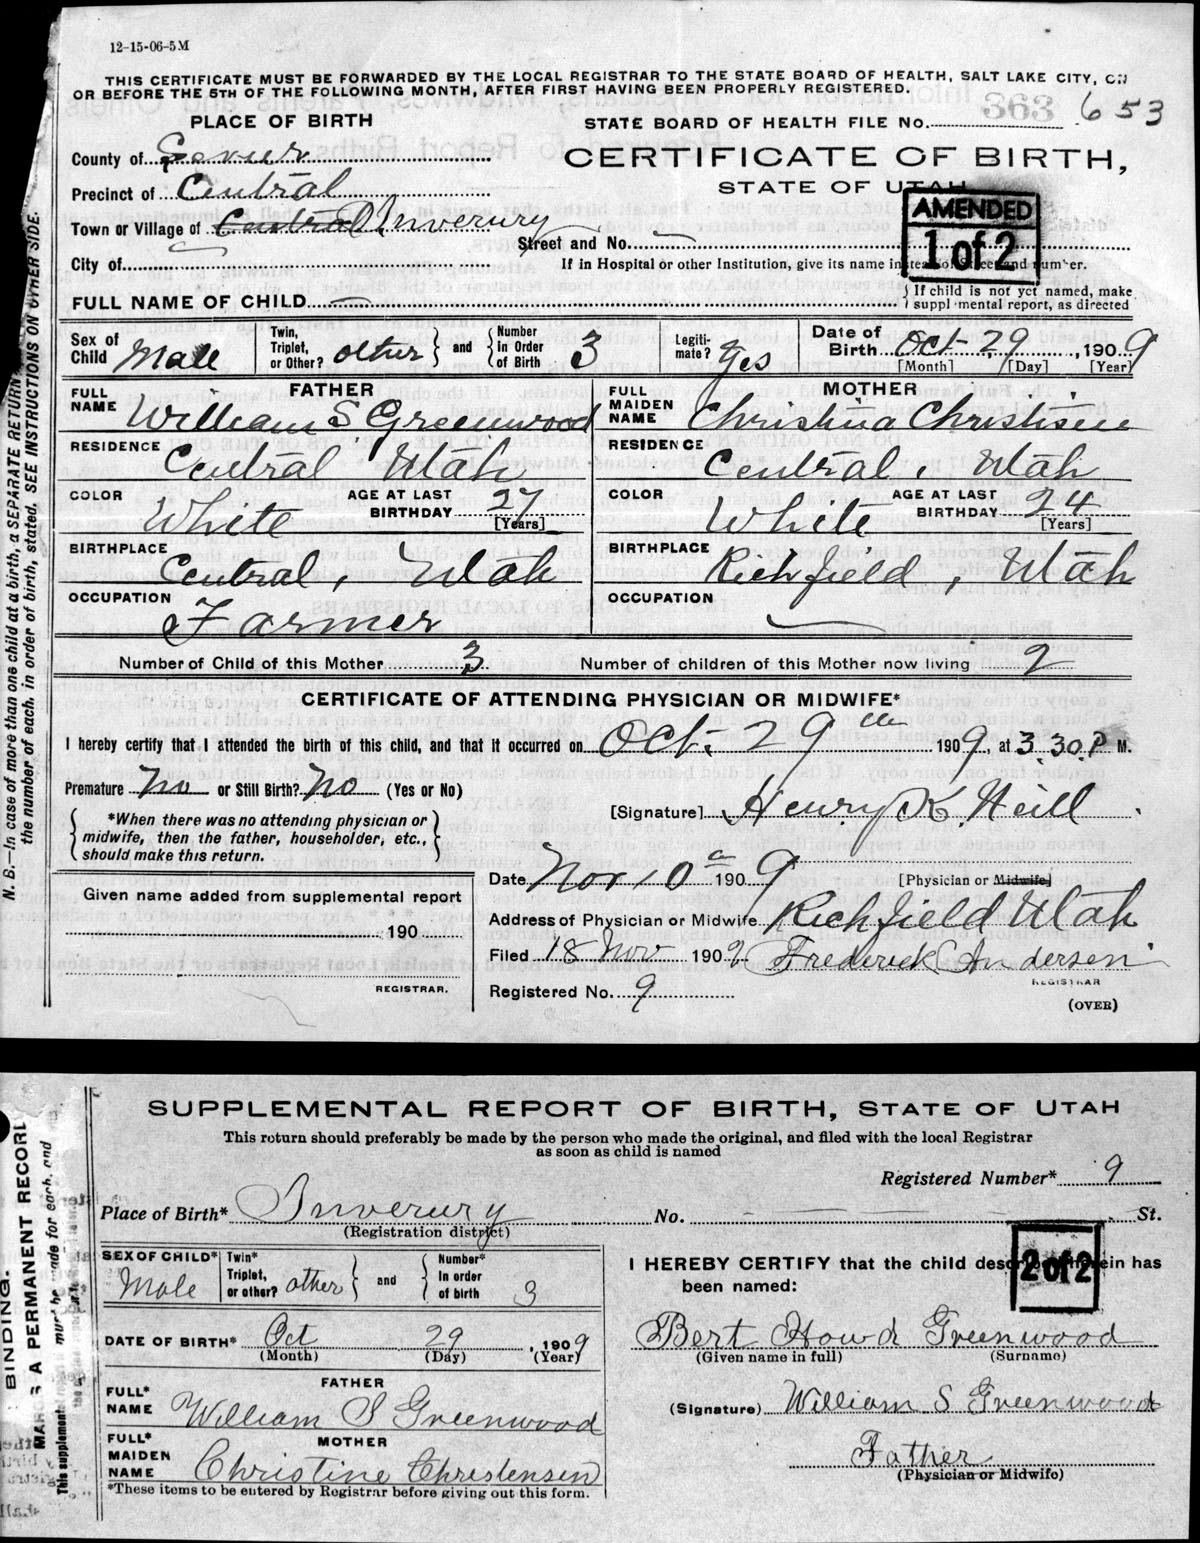 12-15-06-5M
THIS CERTIFICATE MUST BE FORWARDED BY THE LOCAL REGISTRAR TO THE STATE BOARD OF HEALTH, SALT LAKE CITY, ON
OR BEFORE THE 5TH OF THE FOLLOWING MONTH, AFTER FIRST HAVING BEEN PROPERLY REGISTERED.
PLACE OF BIRTH
STATE BOARD OF HEALTH FILE No. 363 653
County of Sevier
CERTIFICATE OF BIRTH,
Precinct of Central
STATE OF UTAH
AMENDED
1 of 2
Town or Village of Central Inverury
Street and No. —
City of
If in Hospital or other Institution, give its name instead of Street and number.
FULL NAME OF CHILD —
If child is not yet named, make
supplemental report, as directed
Sex of Child Male
Twin, Triplet, or Other? other and Number in Order of Birth 3
Legiti- mate? Yes
Date of Birth Oct 29, 1909
[Month] [Day] [Year]
FATHER
FULL NAME William S Greenwood
RESIDENCE Central, Utah
COLOR White AGE AT LAST BIRTHDAY 27 [Years]
BIRTHPLACE Central, Utah
OCCUPATION Farmer
MOTHER
FULL MAIDEN NAME Christina Christisine
RESIDENCE Central, Utah
COLOR White AGE AT LAST BIRTHDAY 24 [Years]
BIRTHPLACE Richfield, Utah
OCCUPATION —
Number of Child of this Mother 3 Number of children of this Mother now living 2
CERTIFICATE OF ATTENDING PHYSICIAN OR MIDWIFE*
I hereby certify that I attended the birth of this child, and that it occurred on Oct. 29th 1909, at 3.30 P M.
Premature No or Still Birth? No (Yes or No)
[Signature] Henry K. Neill
*When there was no attending physician or
midwife, then the father, householder, etc.,
should make this return.
Date Nov 10 1909 [Physician or Midwife]
Given name added from supplemental report
190
REGISTRAR.
Address of Physician or Midwife Richfield Utah
Filed 18 Nov 1909 Frederick C Andersen
REGISTRAR
Registered No. 9
(OVER)
N. B.—In case of more than one child at a birth, a SEPARATE RETURN
the number of each, in order of birth, stated. SEE INSTRUCTIONS ON OTHER SIDE.
SUPPLEMENTAL REPORT OF BIRTH, STATE OF UTAH
This return should preferably be made by the person who made the original, and filed with the local Registrar
as soon as child is named
Registered Number* 9
Place of Birth* Inverury No. — — — St.
(Registration district)
SEX OF CHILD* Male
Twin* Triplet, or other? other and Number* In order of birth 3
DATE OF BIRTH* Oct 29, 1909
(Month) (Day) (Year)
FATHER
FULL* NAME William S Greenwood
MOTHER
FULL* MAIDEN NAME Christine Christensen
*These items to be entered by Registrar before giving out this form.
I HEREBY CERTIFY that the child described herein has
been named:
2 of 2
Bert Howd Greenwood
(Given name in full) (Surname)
(Signature) William S Greenwood
Father
(Physician or Midwife)
BINDING.
A PERMANENT RECORD
This supplemental must be made for each, and